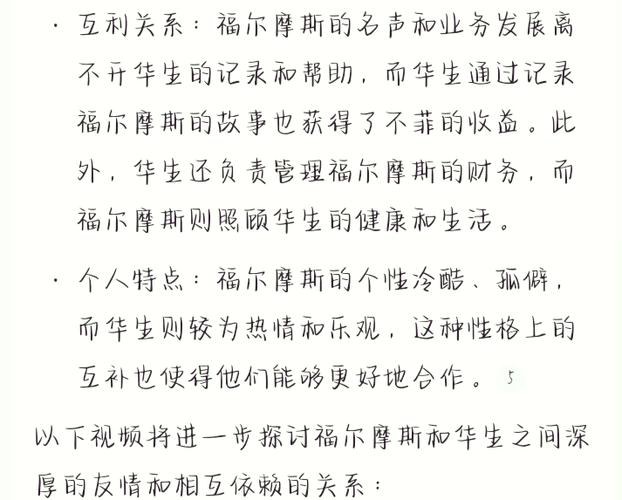 · 互利关系：福尔摩斯的名声和业务发展离
不开华生的记录和帮助，而华生通过记录
福尔摩斯的故事也获得了不菲的收益。此
外，华生还负责管理福尔摩斯的财务，而
福尔摩斯则照顾华生的健康和生活。
· 个人特点：福尔摩斯的个性冷酷、孤僻，
而华生则较为热情和乐观，这种性格上的
互补也使得他们能够更好地合作。 5
以下视频将进一步探讨福尔摩斯和华生之间深
厚的友情和相互依赖的关系：